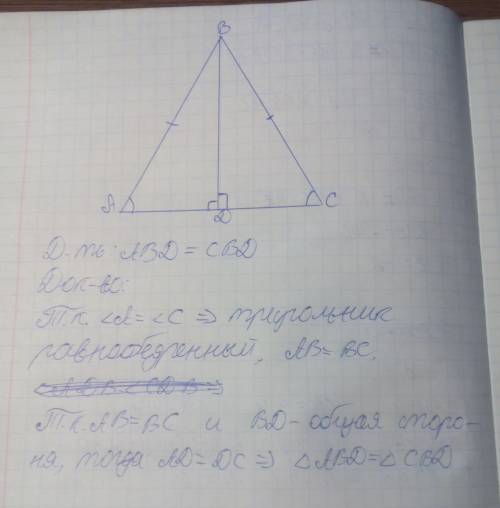 B
A
D
C
Д-ть: ABD = CBD
Док-во:
Т.к. <A = <C => треугольник
равнобедренный, AB = BC.
<ADB = <CDB =>
Т.к. AB = BC и BD - общая сторо-
на, тогда AD = DC => △ABD = △CBD